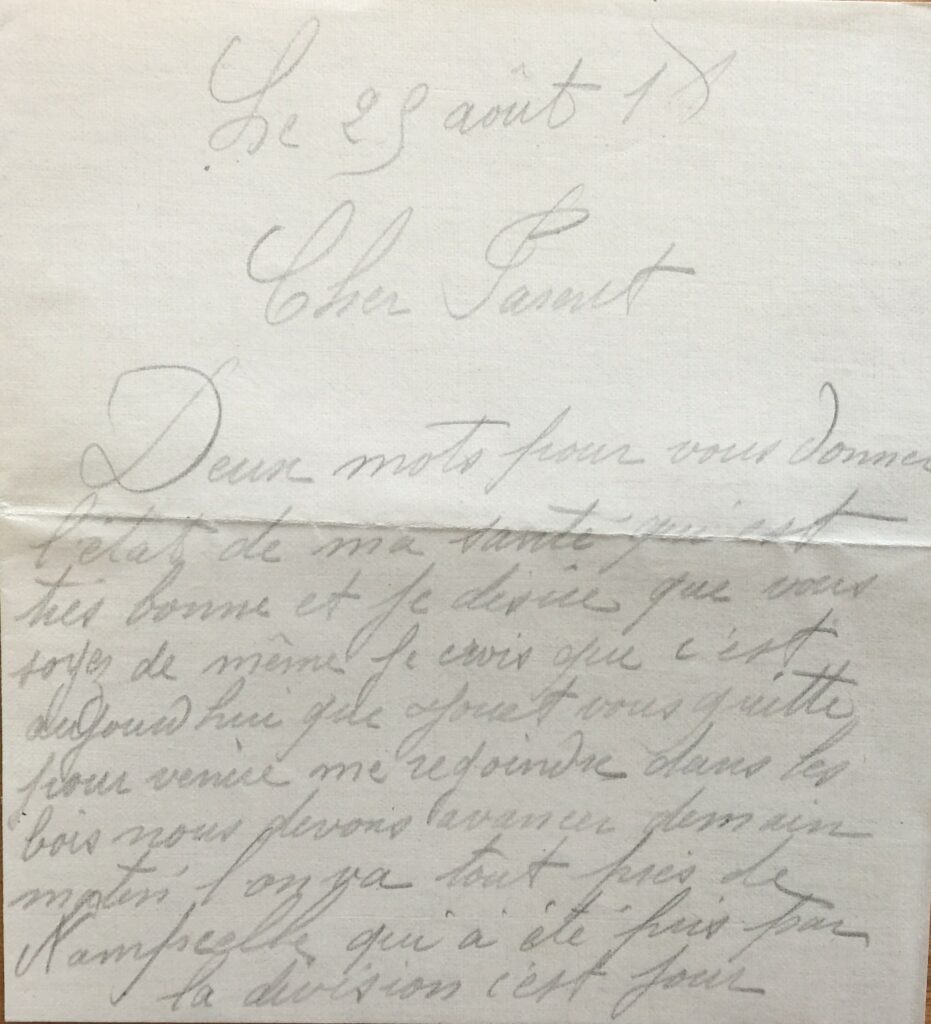 Le 25 août 18
Cher Parent
Deux mots pour vous donner
l'état de ma santé qui est
très bonne et je désire que vous
soyez de même je crois que c'est
aujourd hui que vous quitte
pour venire me rejoindre dans les
bois nous devons avancer demain
matin l'on va tout près de
Nampcelle qui à été pris par
la division c'est jour